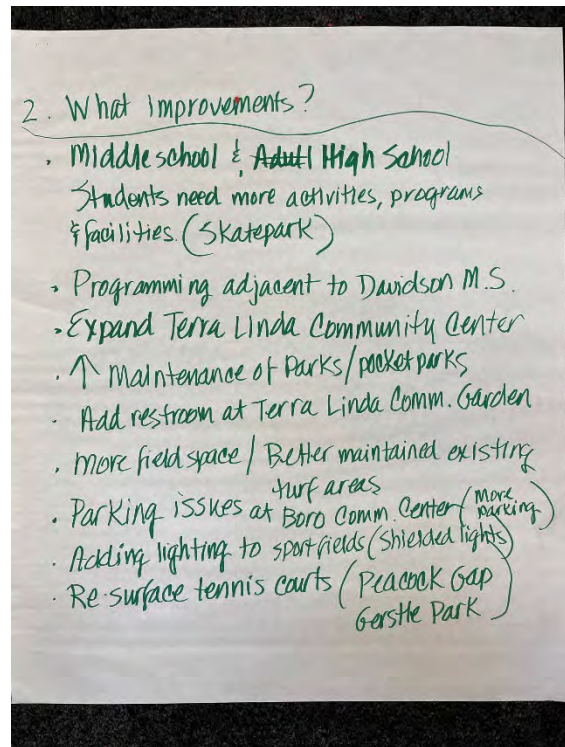 2. What improvements?
· Middle school & Adult High School
Students need more activities, programs
& facilities. (Skatepark)
· Programming adjacent to Davidson M.S.
· Expand Terra Linda Community Center
· ↑ Maintenance of Parks/pocket parks
· Add restroom at Terra Linda Comm. Garden
· More field space / Better maintained existing
turf areas
· Parking issues at Boro Comm. Center (More
parking)
· Adding lighting to sport fields (shielded lights)
· Re-surface tennis courts (Peacock Gap
Gerstle Park)